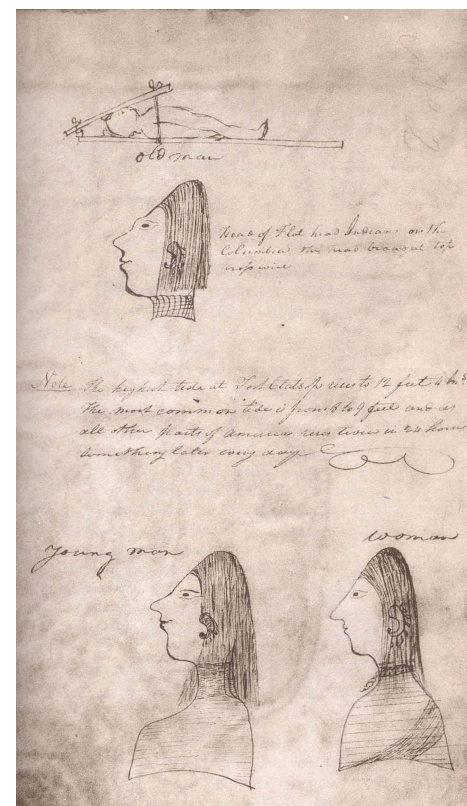 old man
Head of Flat head Indians on the
Columbia the head broad at top
Note The highest tide at Fort Clatsop rises to 12 feet 4 Ins
The most common tide is from 8 to 9 feet and as
all other parts of America rises twice in 24 hours
something later every day.
young man
woman